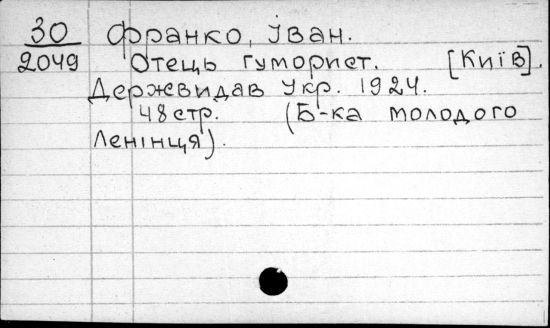 30 Франко, Іван.
2049 Отець гуморист. [Київ].
Держвидав Укр. 1924.
48 стр. (Б-ка молодого
Ленінця).